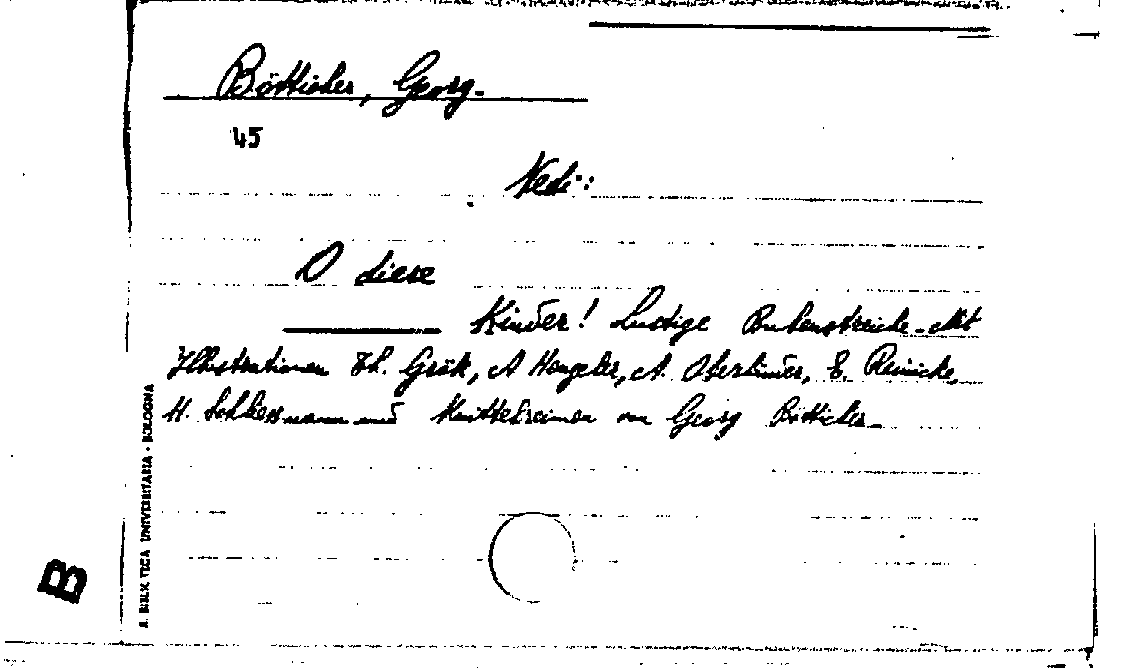 Bötticher, Georg.
45
Vedi:
O diese
Kinder! Lustige Bubenstreiche mit
Illustrationen Th. Grätz, A Hengeler, A. Oberländer, E. Reinicke,
H. Schliessmann und Knittelreimen von Georg Bötticher
UNIVERSITARIA - BOLOGNA
B